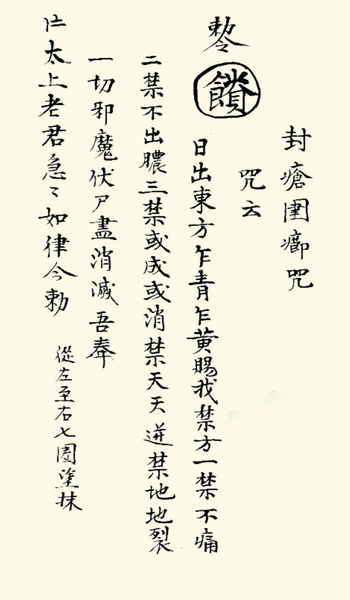 封瘡圍癤咒
咒云
敕
饋
日出東方乍青乍黃賜我禁方一禁不痛
二禁不出膿三禁或成或消禁天天迸禁地地裂
一切邪魔伏尸盡消滅吾奉
太上老君急〻如律令勅
從左至右七圈塗抹